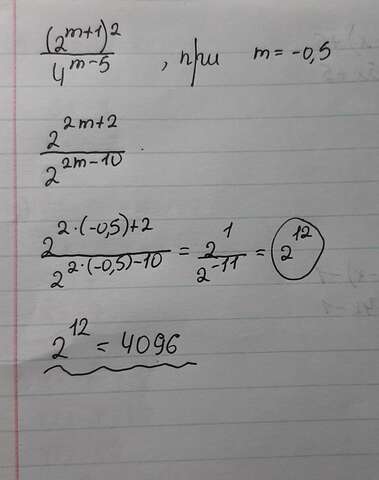 (2^{m+1})^2 / 4^{m-5} , при m = -0,5
2^{2m+2} / 2^{2m-10} .
2^{2·(-0,5)+2} / 2^{2·(-0,5)-10} = 2^1 / 2^{-11} = 2^{12}
2^{12} = 4096